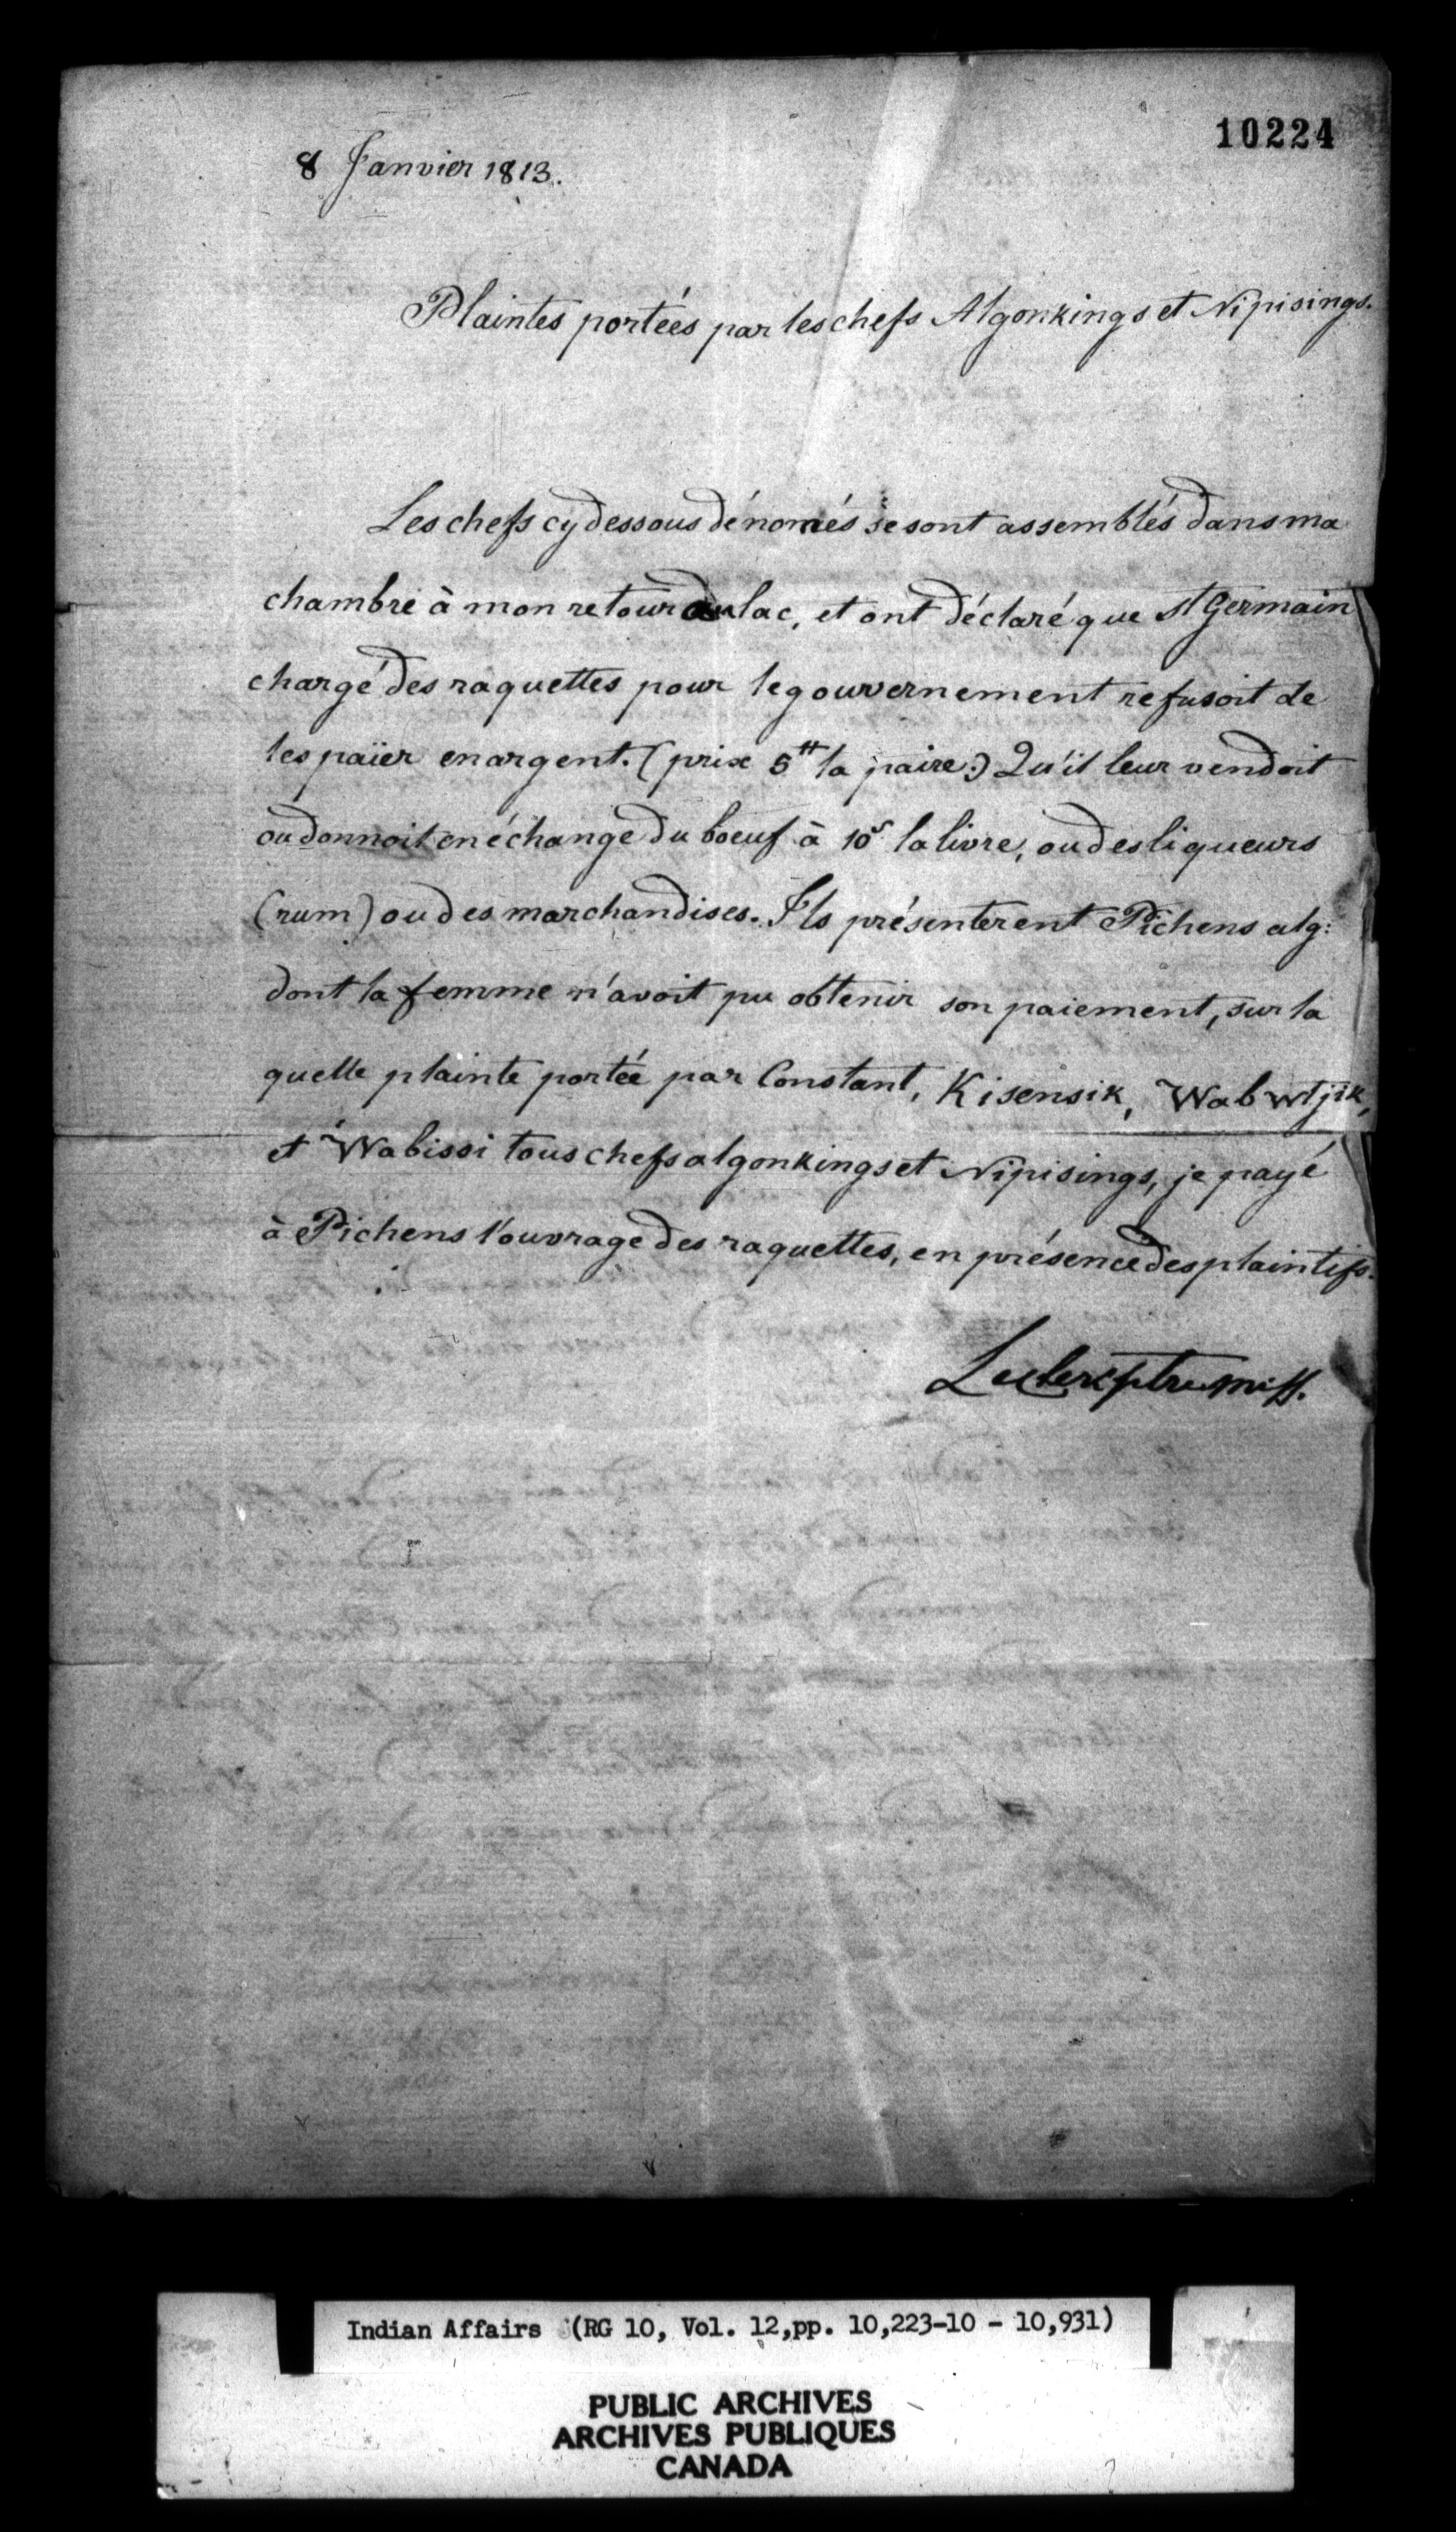 10224
8 Janvier 1813.
Plaintes portées par les chefs Algonkings et Nipisings.
Les chefs cy dessous dénomés se sont assemblés dans ma
chambre à mon retour au lac, et ont déclaré que St Germain
chargé des raquettes pour le gouvernement refusoit de
les païer en argent. (prix 5tt la paire.) Qu'il leur vendoit
ou donnoit en échange du boeuf à 10s la livre, ou des liqueurs
(rum) ou des marchandises. Ils présenterent Pichens alg:
dont la femme n'avoit pu obtenir son paiement, sur la
quelle plainte portée par Constant, Kisensik, Wabwtjik,
et Wabissi tous chefs algonkings et Nipisings, je payé
à Pichens l'ouvrage des raquettes, en présence des plaintifs.
Leclerc ptre miss.
Indian Affairs (RG 10, Vol. 12,pp. 10,223-10 - 10,931)
PUBLIC ARCHIVES
ARCHIVES PUBLIQUES
CANADA